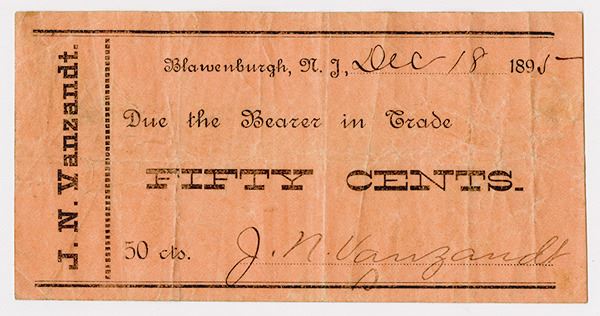 J. N. Vanzandt.
Blawenburgh, N. J., Dec 18 1895
Due the Bearer in Trade
FIFTY CENTS.
50 cts. J. N. Vanzandt